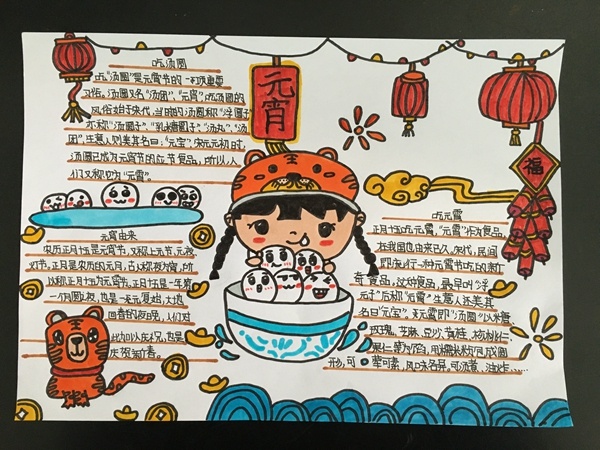 吃汤圆
吃“汤圆”是元宵节的一项重要
习俗。汤圆又名“汤团”、“元宵”吃汤圆的
风俗始于宋代，当时的汤圆称“浮圆子”
亦称“汤圆子”、“乳糖圆子”、“汤丸”、“汤
团”生意人则美其名曰：“元宝”，宋元初时，
汤圆已成为元宵节的应节食品，所以人
们又称它为“元宵”。
元宵
福
元宵由来
农历正月十五是元宵节，又称上元节，元夜，
灯节。正月是农历的元月，古人称夜为宵，所
以称正月十五为元宵节。正月十五是一年第
一个月圆之夜，也是一元复始，大地
回春的夜晚，人们对
此加以庆祝，也是
庆贺新春。
吃元宵
正月十五吃元宵，“元宵”作为食品，
在我国也由来已久，宋代，民间
即流行一种元宵节吃的新
奇食品，这种食品，最早叫“浮
元子”后称“元宵”生意人还美其
名曰“元宝”。元宵即“汤圆”以
玫瑰、芝麻、豆沙、核桃仁、
果仁
形，可荤可素，风味各异。可汤煮、油炸……